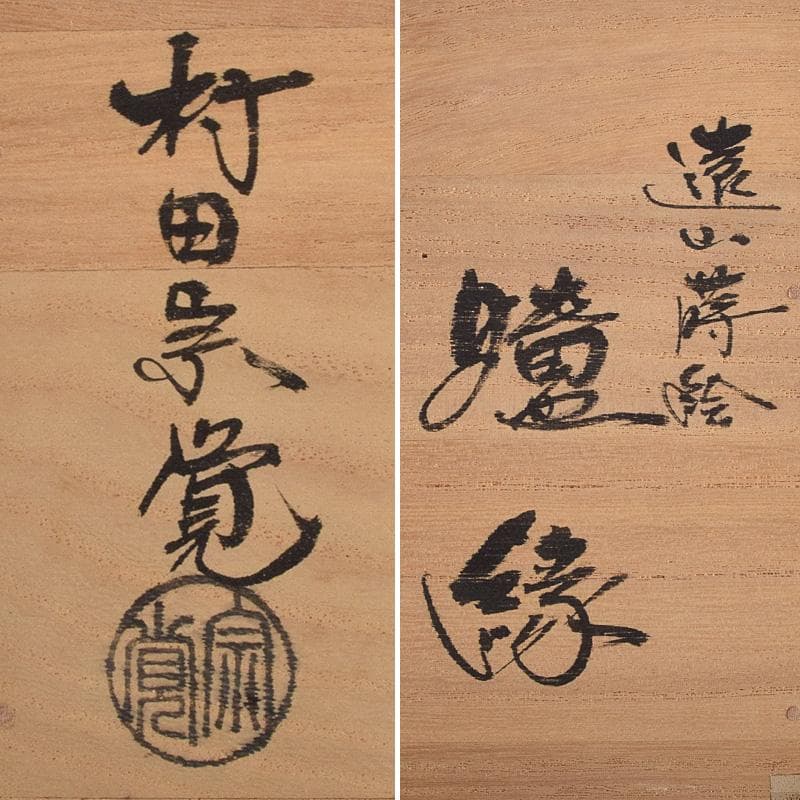 村田宗覚
宗覚
遠山蒔絵
爐縁